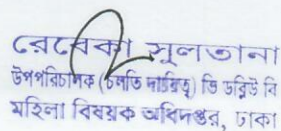 রেবেকা সুলতানা
উপপরিচালক (চলতি দায়িত্ব) ভি ডব্লিউ বি
মহিলা বিষয়ক অধিদপ্তর, ঢাকা